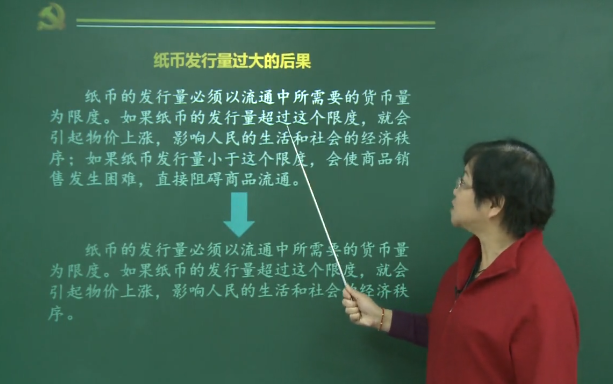 纸币发行量过大的后果
纸币的发行量必须以流通中所需要的货币量
为限度。如果纸币的发行量超过这个限度，就会
引起物价上涨，影响人民的生活和社会的经济秩
序；如果纸币发行量小于这个限度，会使商品销
售发生困难，直接阻碍商品流通。
纸币的发行量必须以流通中所需要的货币量
为限度。如果纸币的发行量超过这个限度，就会
引起物价上涨，影响人民的生活和社会的经济秩
序。